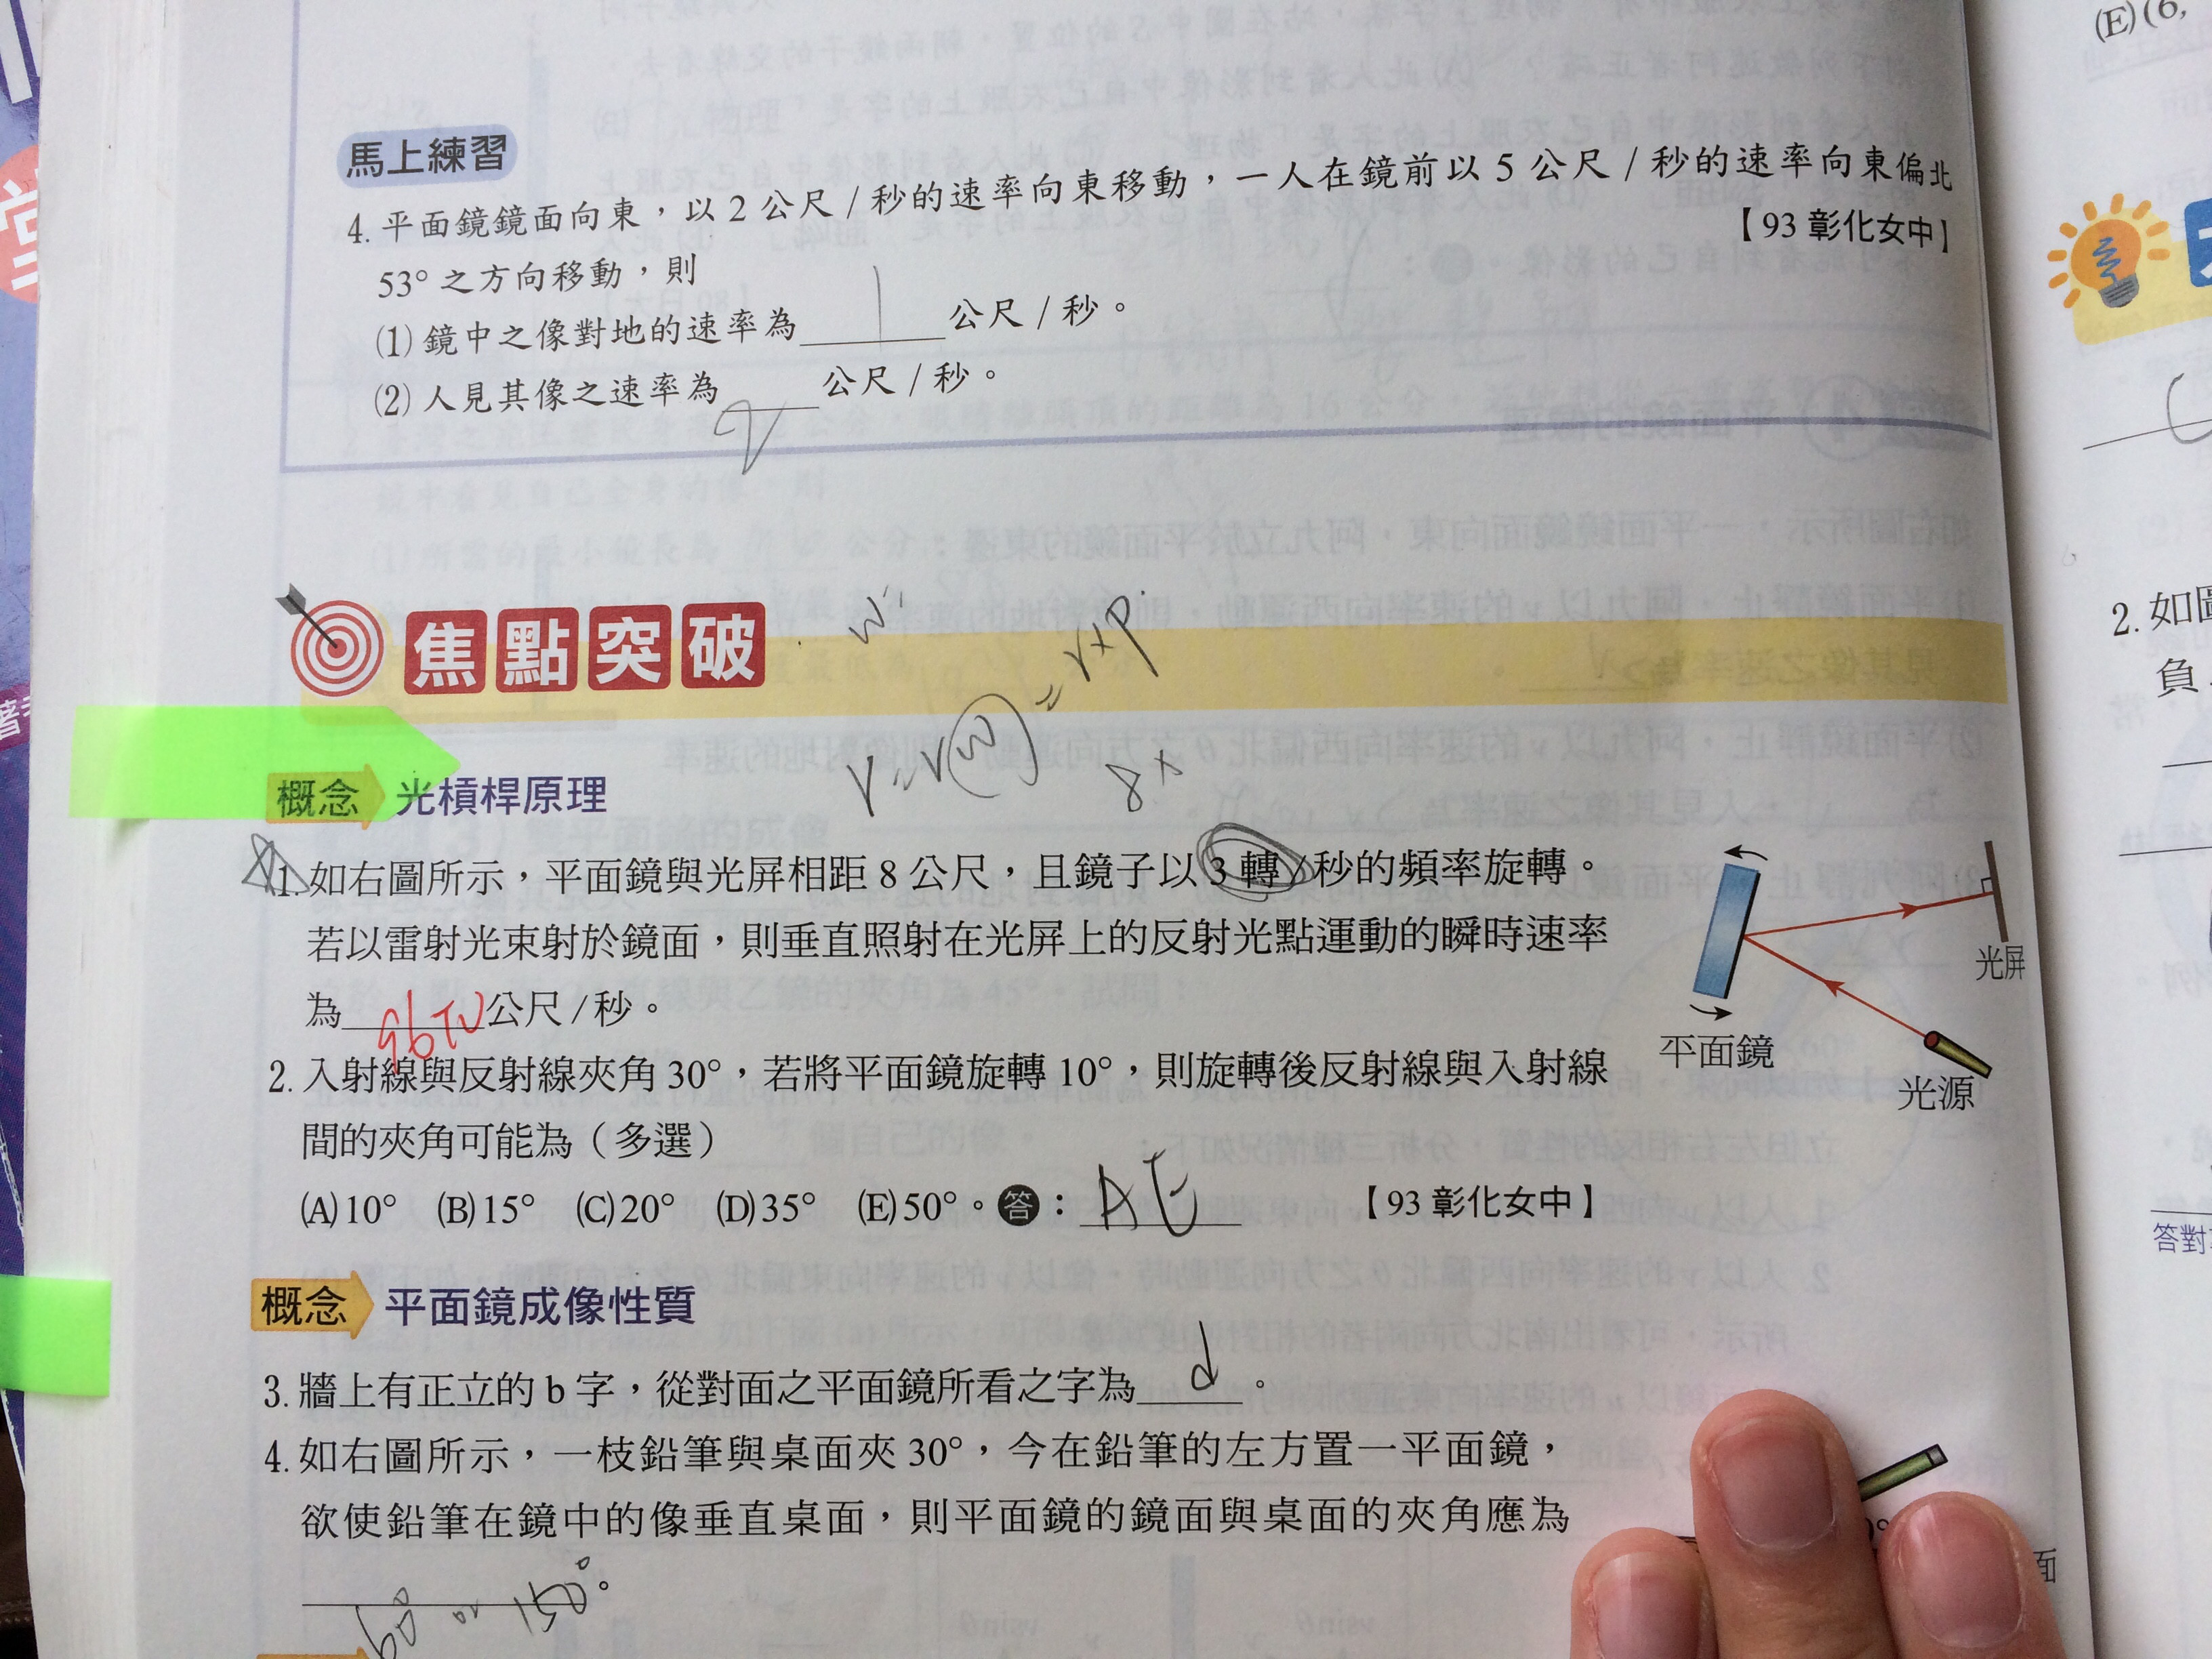 (E)(6,
馬上練習
4. 平面鏡鏡面向東，以 2 公尺 / 秒的速率向東移動，一人在鏡前以 5 公尺 / 秒的速率向東偏北
53° 之方向移動，則
【93 彰化女中】
(1) 鏡中之像對地的速率為 1 公尺 / 秒。
(2) 人見其像之速率為 公尺 / 秒。
焦點突破
8×
概念 光槓桿原理
1. 如右圖所示，平面鏡與光屏相距 8 公尺，且鏡子以 3 轉 / 秒的頻率旋轉。
若以雷射光束射於鏡面，則垂直照射在光屏上的反射光點運動的瞬時速率
為 96π 公尺 / 秒。
光屏
平面鏡
光源
2. 入射線與反射線夾角 30°，若將平面鏡旋轉 10°，則旋轉後反射線與入射線
間的夾角可能為（多選）
(A) 10° (B) 15° (C) 20° (D) 35° (E) 50°。答：AE 【93 彰化女中】
概念 平面鏡成像性質
3. 牆上有正立的 b 字，從對面之平面鏡所看之字為 d 。
4. 如右圖所示，一枝鉛筆與桌面夾 30°，今在鉛筆的左方置一平面鏡，
欲使鉛筆在鏡中的像垂直桌面，則平面鏡的鏡面與桌面的夾角應為
60° or 150° 。
面
2. 如
負
答對